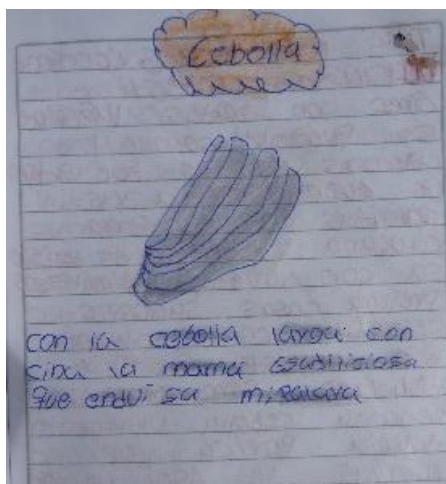 Cebolla
con la cebolla larga con
cina la mama Esalniciosa
que endulsa mi